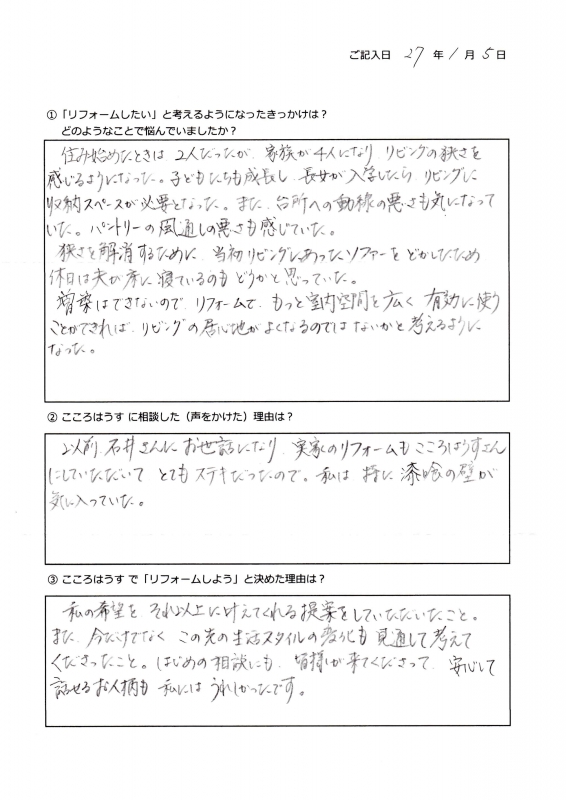 ご記入日 27 年 1 月 5 日
①「リフォームしたい」と考えるようになったきっかけは？
どのようなことで悩んでいましたか？
住み始めたときは 2人だったが、家族が4人になり、リビングの狭さを
感じるようになった。子どもたちも成長し、長女が入学したら、リビングに
収納スペースが必要となった。また、台所への動線の悪さも気になって
いた。パントリーの風通しの悪さも感じていた。
狭さを解消するために、当初リビングにあったソファーをどかしたため
休日は夫が床に寝ているのもどうかと思っていた。
増築はできないので、リフォームで、もっと室内空間を広く 有効に使う
ことができれば、リビングの居心地がよくなるのではないかと考えるように
なった。
② こころはうす に相談した（声をかけた）理由は？
以前、石井さんにお世話になり、実家のリフォームもこころはうすさん
にしていただいて とてもステキだったので。私は 特に 漆喰の壁が
気に入っていた。
③ こころはうす で「リフォームしよう」と決めた理由は？
私の希望を、それ以上に叶えてくれる提案をしていただいたこと。
また、今だけでなく この先の生活スタイルの変化も 見通して考えて
くださったこと。はじめの相談にも、皆様が来てくださって、安心して
話せるお人柄も 私には うれしかったです。